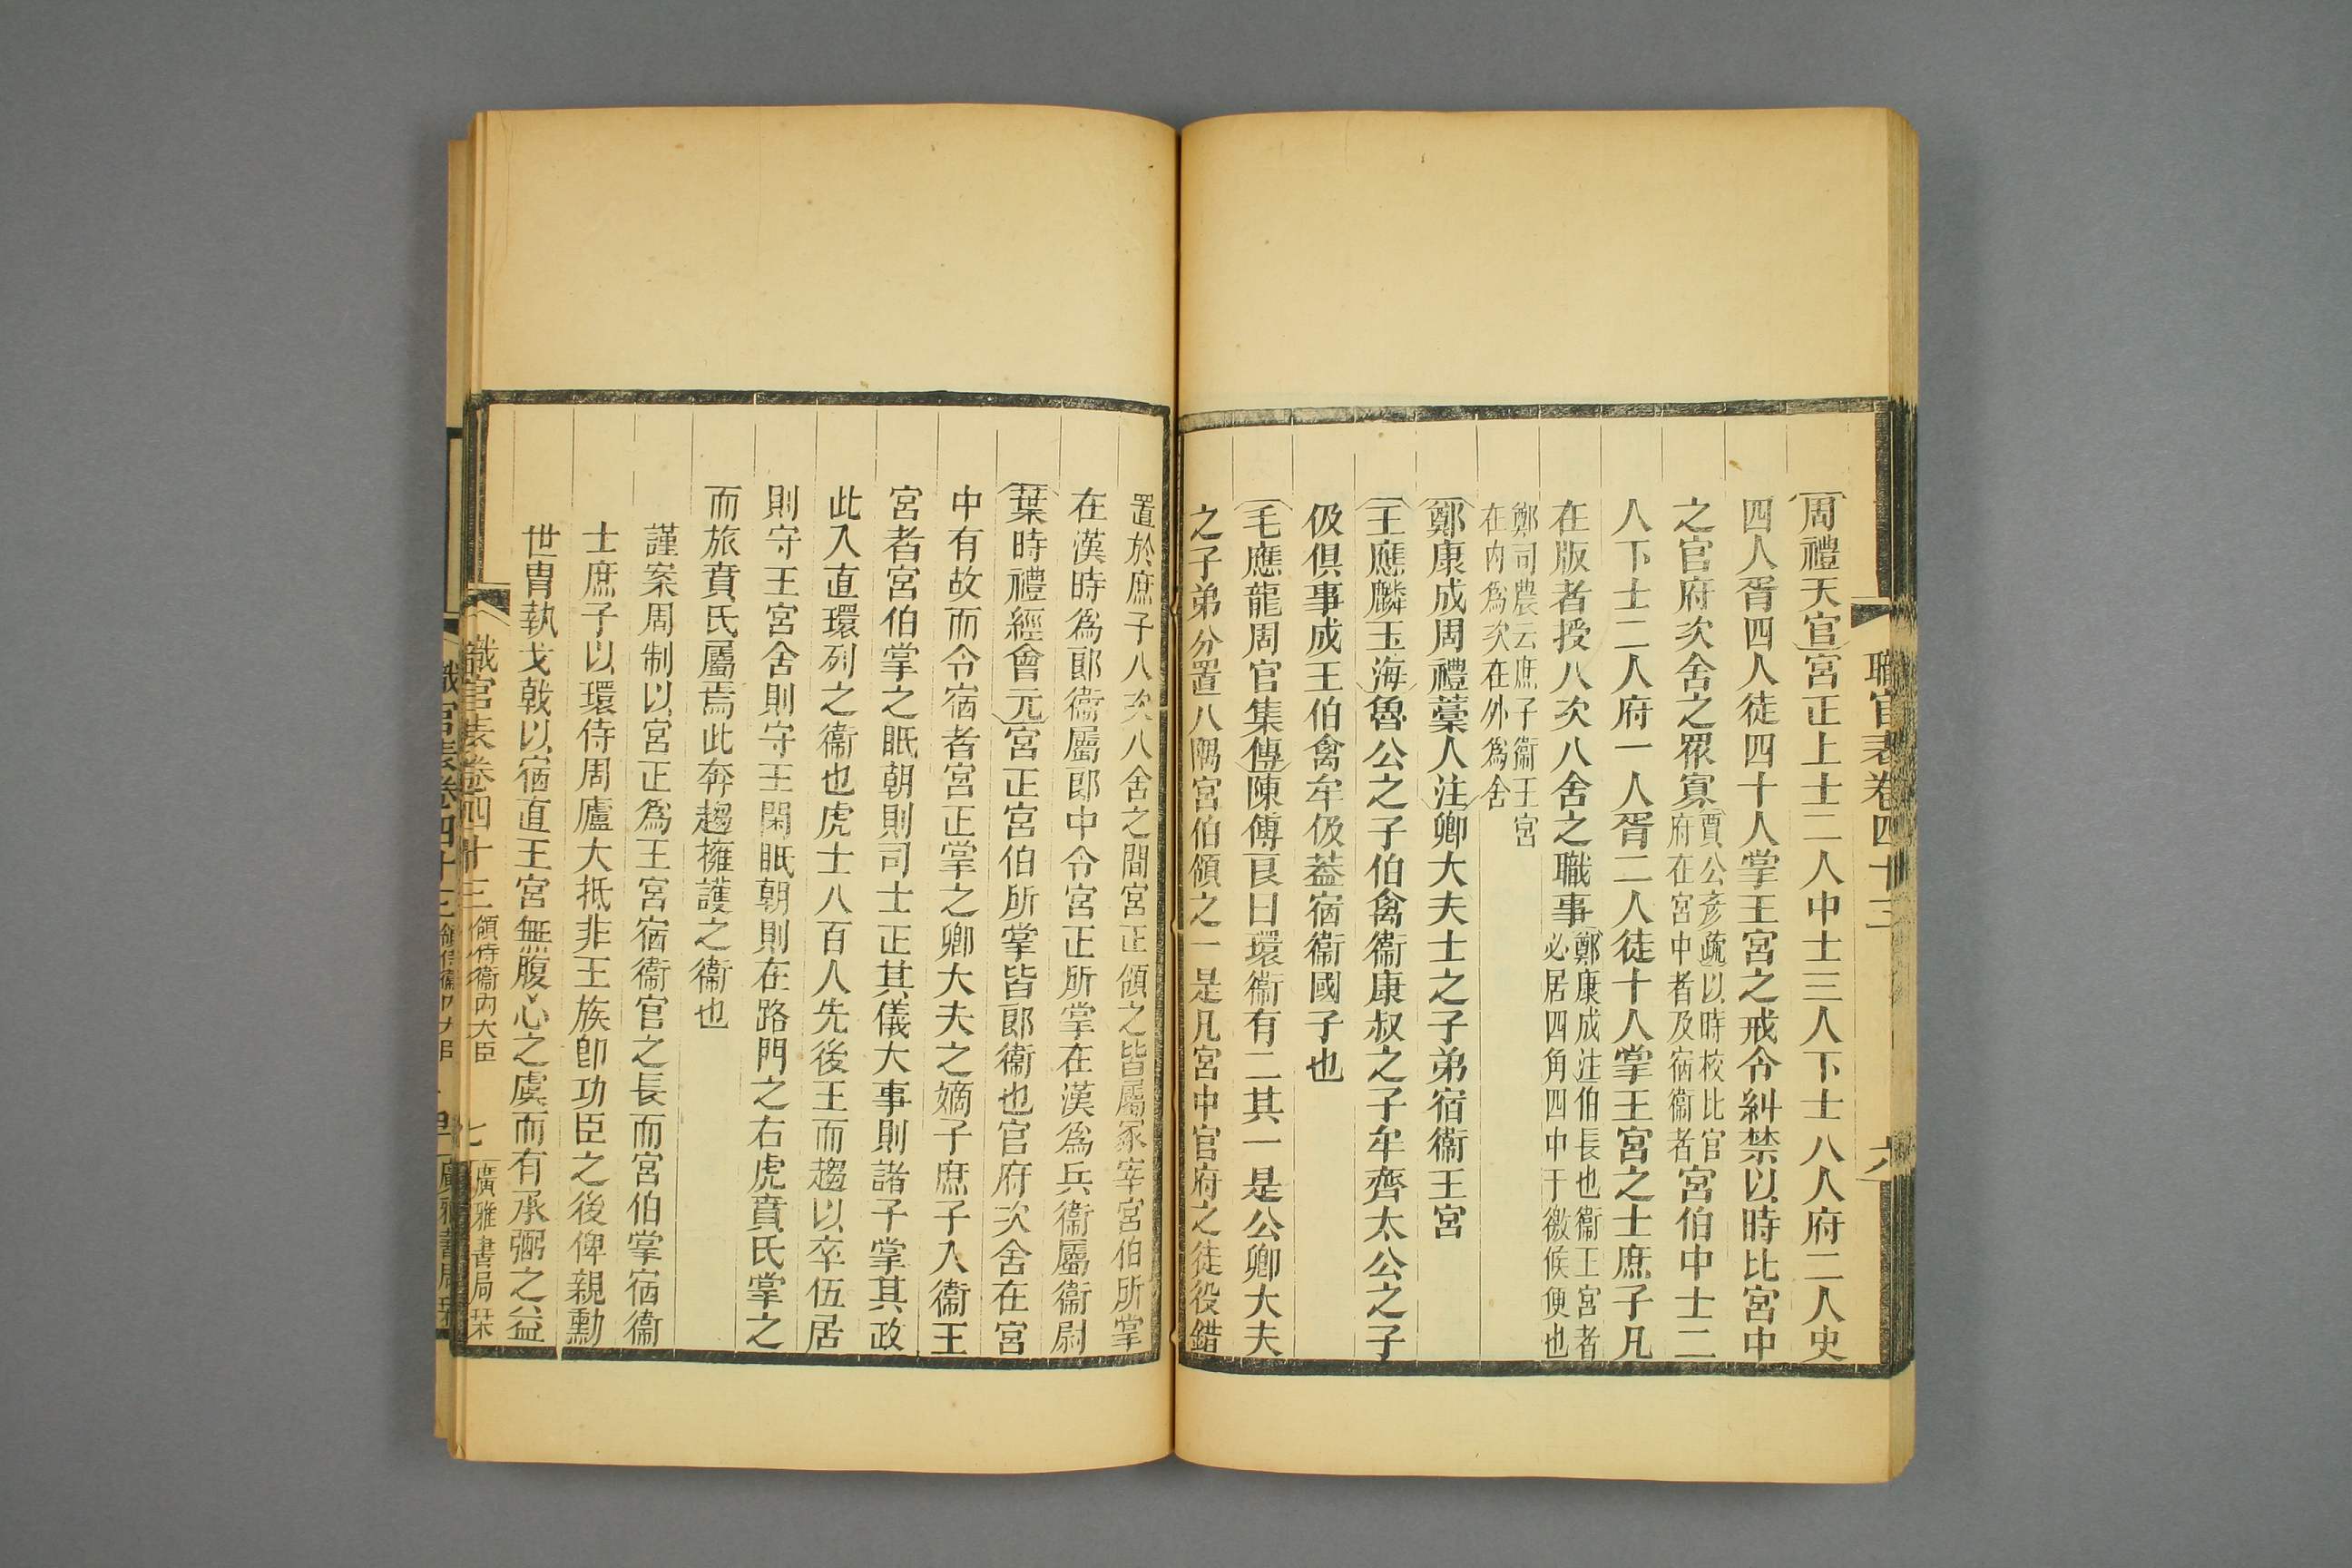 職官表卷四十三　六
周禮天官宮正上士二人中士三人下士八人府二人史
四人胥四人徒四十人掌王宮之戒令糾禁以時比宮中
之官府次舍之眾寡賈公彥疏以時校比宮府在宮中者及宿衞者宮伯中士二
人下士二人府一人胥二人徒十人掌王宮之士庶子凡
在版者授八次八舍之職事鄭康成注伯長也衞王宮者必居四角四中于徼候便也
鄭司農云庶子衞王宮在內爲次在外爲舍
鄭康成周禮藁人注卿大夫士之子弟宿衞王宮
王應麟玉海魯公之子伯禽衞康叔之子牟齊太公之子
伋俱事成王伯禽牟伋蓋宿衞國子也
毛應龍周官集傳陳傅良曰環衞有二其一是公卿大夫
之子弟分置八隅宮伯領之一是凡宮中官府之徒役錯
置於庶子八次八舍之間宮正領之皆屬冢宰宮伯所掌
在漢時爲郎衞屬郎中令宮正所掌在漢爲兵衞屬衞尉
葉時禮經會元宮正宮伯所掌皆郎衞也官府次舍在宮
中有故而令宿者宮正掌之卿大夫之嫡子庶子入衞王
宮者宮伯掌之眂朝則司士正其儀大事則諸子掌其政
此入直環列之衞也虎士八百人先後王而趨以卒伍居
則守王宮舍則守王閑眂朝則在路門之右虎賁氏掌之
而旅賁氏屬焉此奔趨擁護之衞也
謹案周制以宮正爲王宮宿衞官之長而宮伯掌宿衞
士庶子以環侍周廬大抵非王族卽功臣之後俾親勳
世胄執戈戟以宿直王宮無腹心之虞而有承弼之益
職官表卷四十三　領侍衞內大臣　七　廣雅書局栞